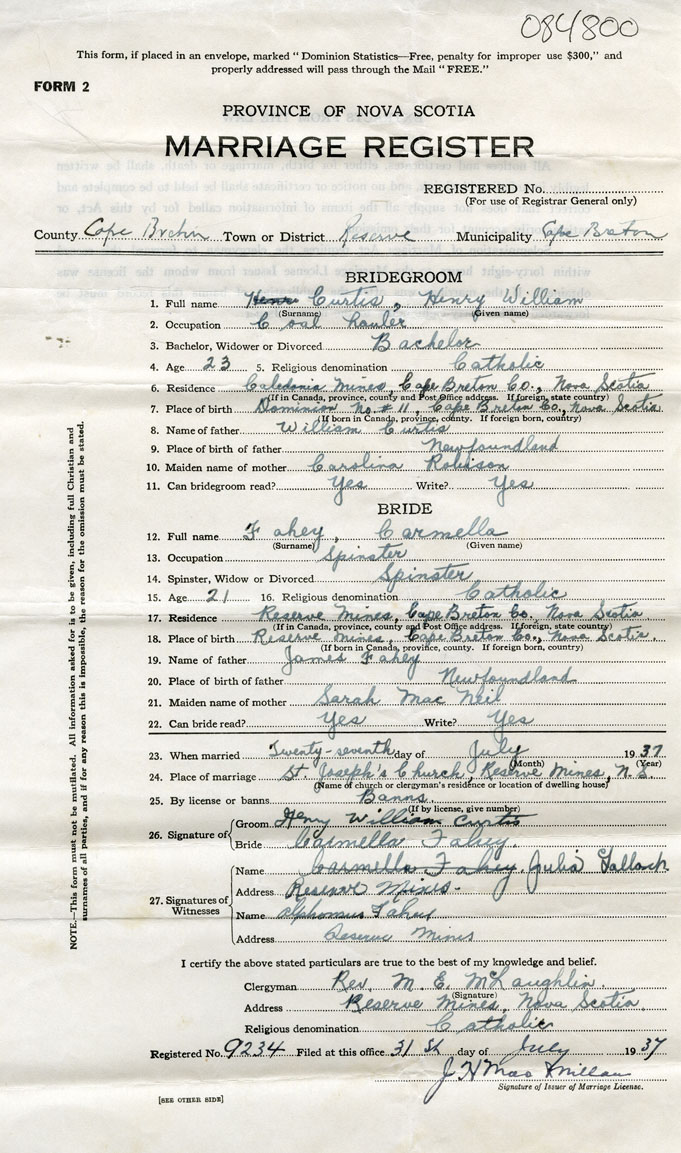 084800
This form, if placed in an envelope, marked "Dominion Statistics—Free, penalty for improper use $300," and
properly addressed will pass through the Mail "FREE."
FORM 2
PROVINCE OF NOVA SCOTIA
MARRIAGE REGISTER
REGISTERED No.
(For use of Registrar General only)
County Cape Breton Town or District Reserve Municipality Cape Breton
BRIDEGROOM
1. Full name Henr Curtis, Henry William
(Surname) (Given name)
2. Occupation Coal hauler
3. Bachelor, Widower or Divorced Bachelor
4. Age 23 5. Religious denomination Catholic
6. Residence Caledonia Mines, Cape Breton Co., Nova Scotia
(If in Canada, province, county and Post Office address. If foreign, state country)
7. Place of birth Dominion No. #11, Cape Breton Co., Nova Scotia
(If born in Canada, province, county. If foreign born, country)
8. Name of father William Curtis
9. Place of birth of father Newfoundland
10. Maiden name of mother Carolina Robinson
11. Can bridegroom read? Yes Write? Yes
BRIDE
12. Full name Fahey, Carmella
(Surname) (Given name)
13. Occupation Spinster
14. Spinster, Widow or Divorced Spinster
15. Age 21 16. Religious denomination Catholic
17. Residence Reserve Mines, Cape Breton Co. Nova Scotia
(If in Canada, province, county and Post Office address. If foreign, state country)
18. Place of birth Reserve Mines, Cape Breton Co., Nova Scotia.
(If born in Canada, province, county. If foreign born, country)
19. Name of father James Fahey
20. Place of birth of father Newfoundland
21. Maiden name of mother Sarah Mac Neil
22. Can bride read? Yes Write? Yes
23. When married Twenty-seventh day of July 1937
(Month) (Year)
24. Place of marriage St. Joseph's Church, Reserve Mines, N.S.
(Name of church or clergyman's residence or location of dwelling house)
25. By license or banns Banns
(If by license, give number)
26. Signature of Groom Henry William Curtis
Bride Carmella Fahey.
27. Signatures of Witnesses
Name Carmella Fahey Julia Gallach
Address Reserve Mines.
Name Alphonsus Fahey
Address Reserve Mines
I certify the above stated particulars are true to the best of my knowledge and belief.
Clergyman Rev. M. E. McLaughlin.
(Signature)
Address Reserve Mines, Nova Scotia.
Religious denomination Catholic
Registered No. 9234 Filed at this office 31 st day of July 1937
J H MacKmillan
Signature of Issuer of Marriage License.
[SEE OTHER SIDE]
NOTE.—This form must not be mutilated. All information asked for is to be given, including full Christian and
surnames of all parties, and if for any reason this is impossible, the reason for the omission must be stated.